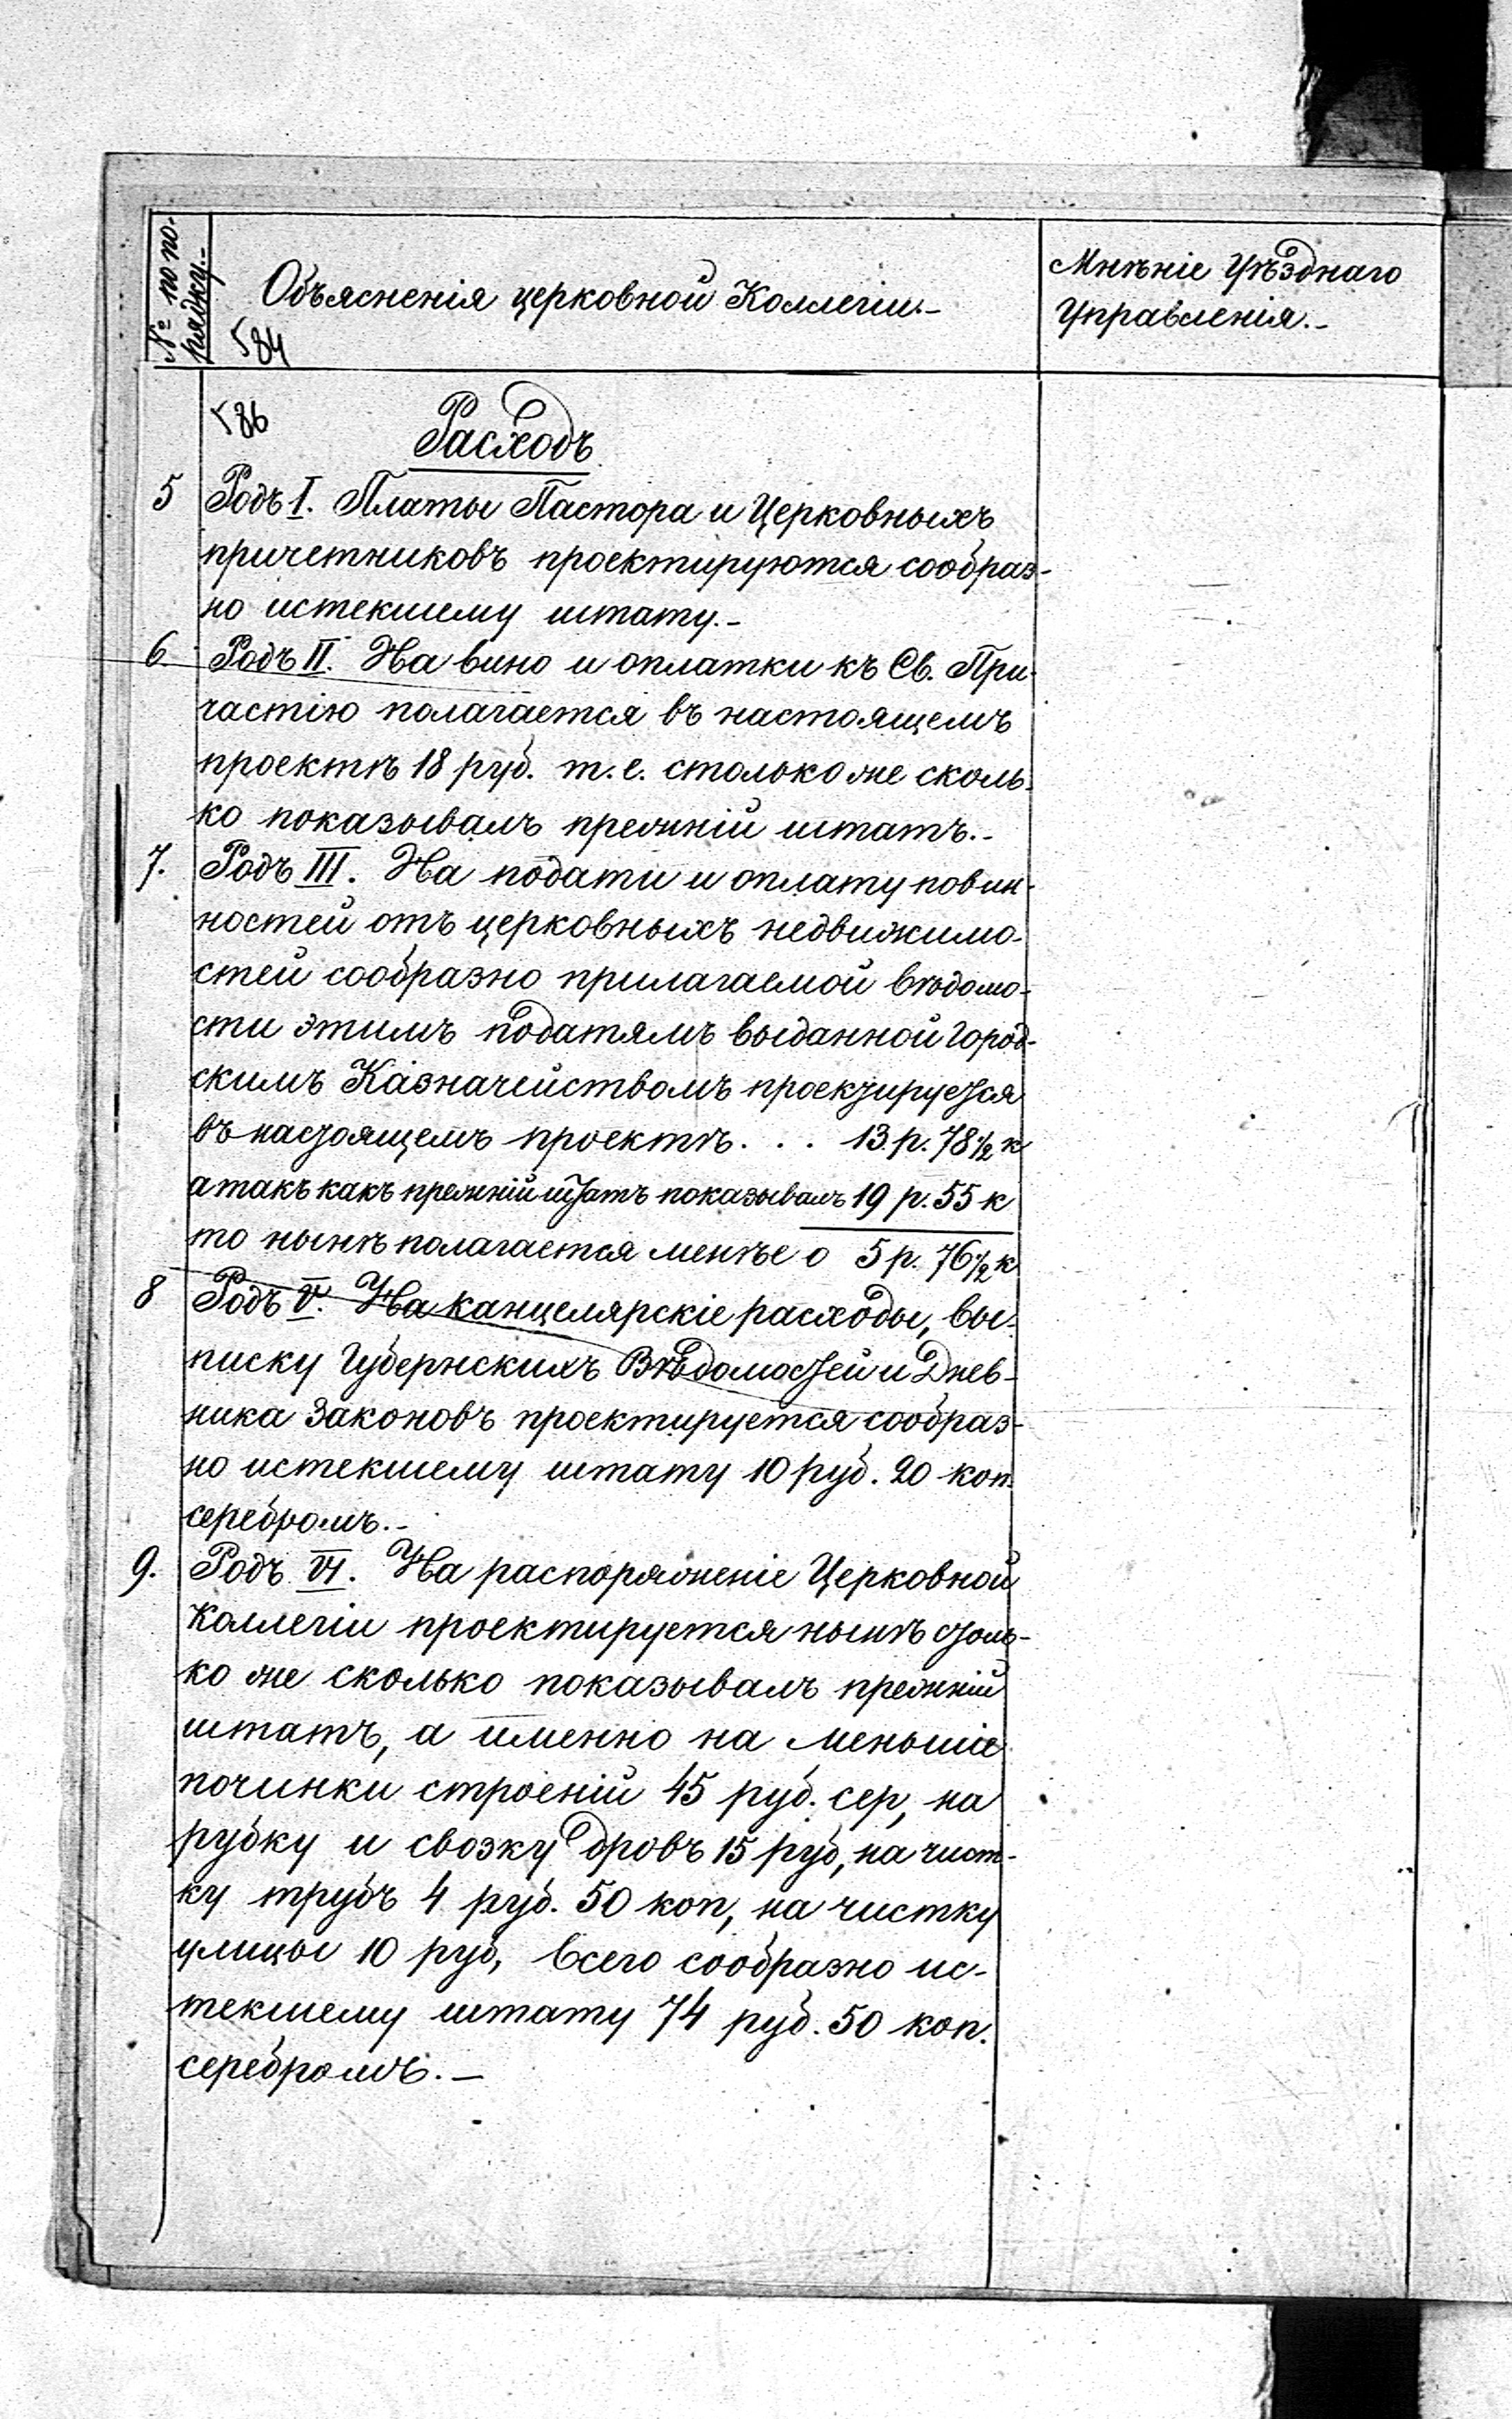 № по по-
рядку.-
Объясненія церковной Коллегіи.-
584
Мнѣніе Уѣзднаго
Управленія.-
586
Расходъ
5 Родъ I. Платы Пастора и Церковныхъ
причетниковъ проектируются сообраз-
но истекшему штату.-
6 Родъ II. На вино и оплатки къ Св. При-
частію полагается въ настоящемъ
проектѣ 18 руб. т.е. столько же сколь-
ко показывалъ прежній штатъ.-
7. Родъ III. На подати и оплату повин-
ностей отъ церковныхъ недвижимо-
стей сообразно прилагаемой вѣдомо-
сти этимъ податямъ выданной Город-
скимъ Казначействомъ проектируется
въ настоящемъ проектѣ. . . 13.р. 78½ к
а такъ какъ прежній штатъ показывалъ 19 р. 55 к
то нынѣ полагается менѣе о 5 р. 76½ к
8 Родъ V. На канцелярскіе расходы, вы-
писку Губернскихъ Вѣдомостей и Днев-
ника Законовъ проектируется сообраз-
но истекшему штату 10 руб. 20 коп.
серебромъ.-
9. Родъ VI. На распоряженіе Церковной
Коллегіи проектируется нынѣ столь-
ко же сколько показывалъ прежній
штатъ, а именно на меньшіе
починки строеній 45 руб. сер, на
рубку и свозку дровъ 15 руб, на чист-
ку трубъ 4 руб. 50 коп, на чистку
улицы 10 руб, всего сообразно ис-
текшему штату 74 руб. 50 коп.
серебромъ.-